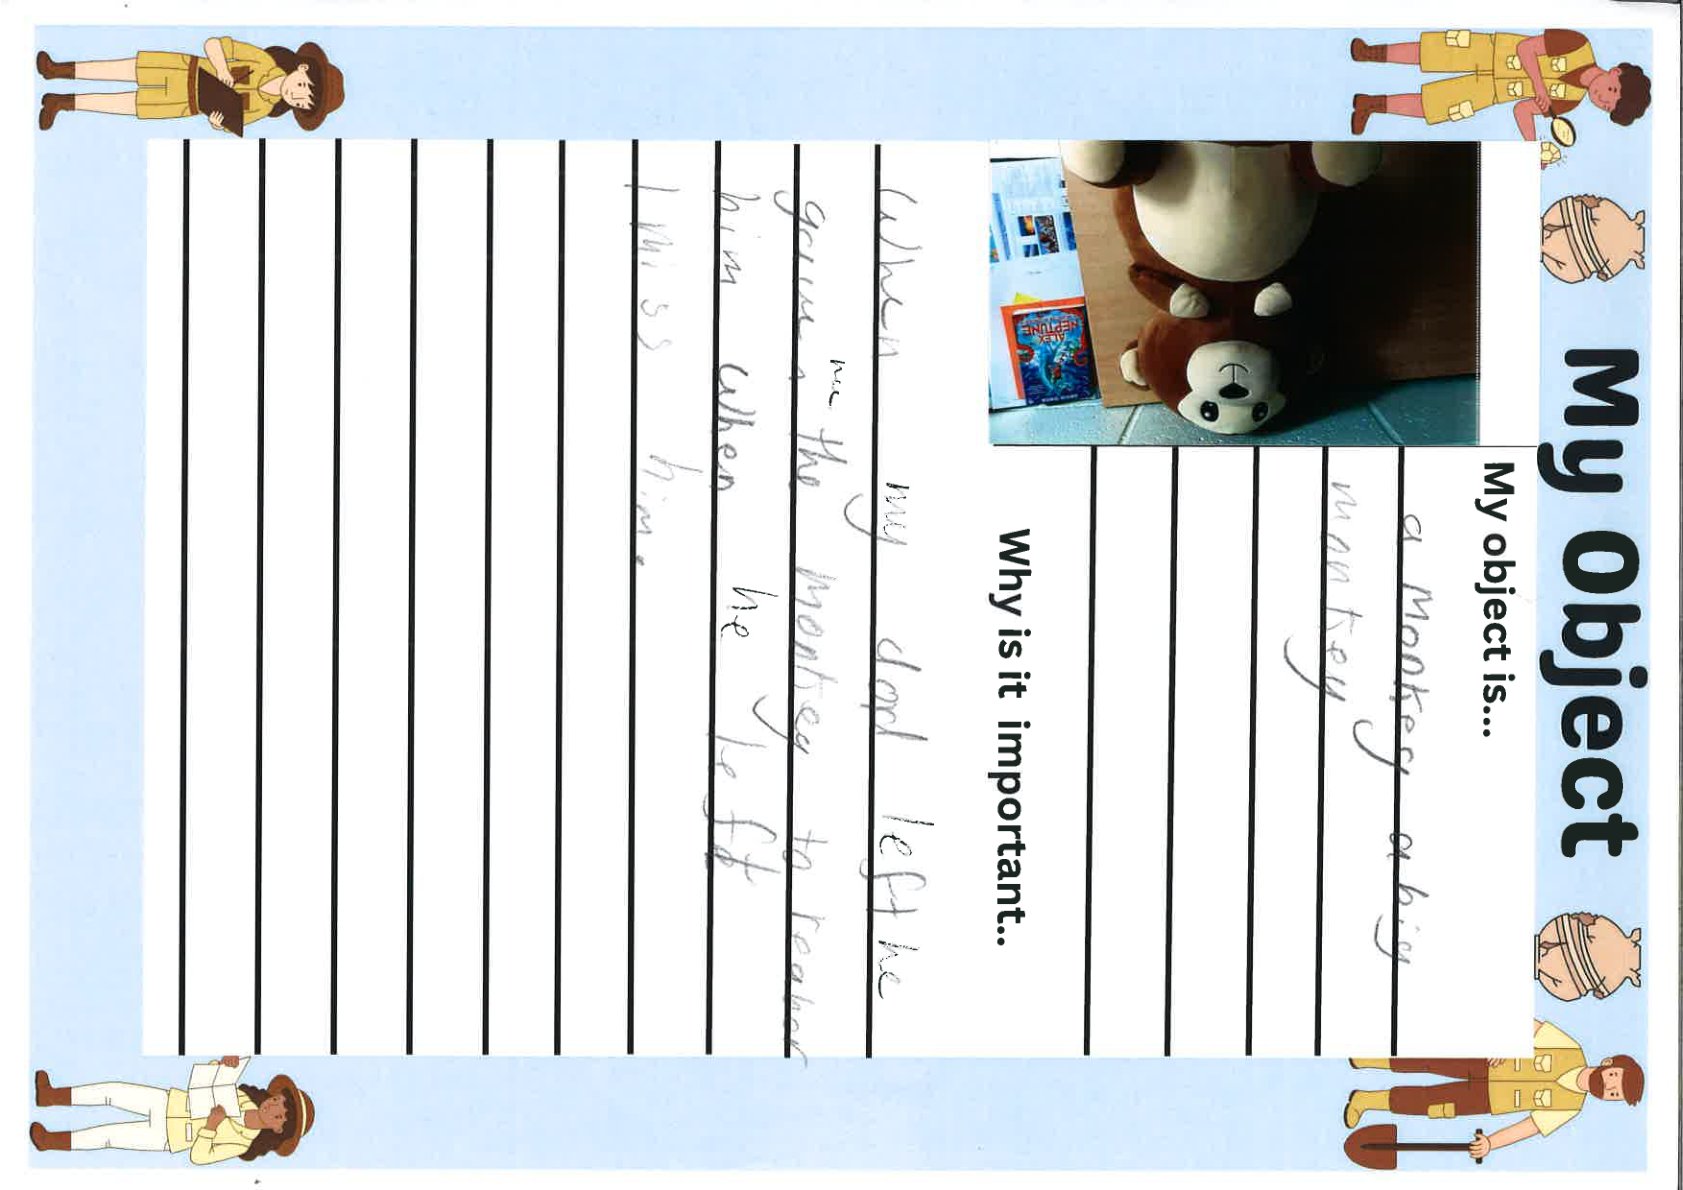 My Object
My object is...
a Monkey a big
monkey
ALEX
NEPTUNE
Why is it important..
When my dad left he
gave me the monkey to
him when he left
I miss him.